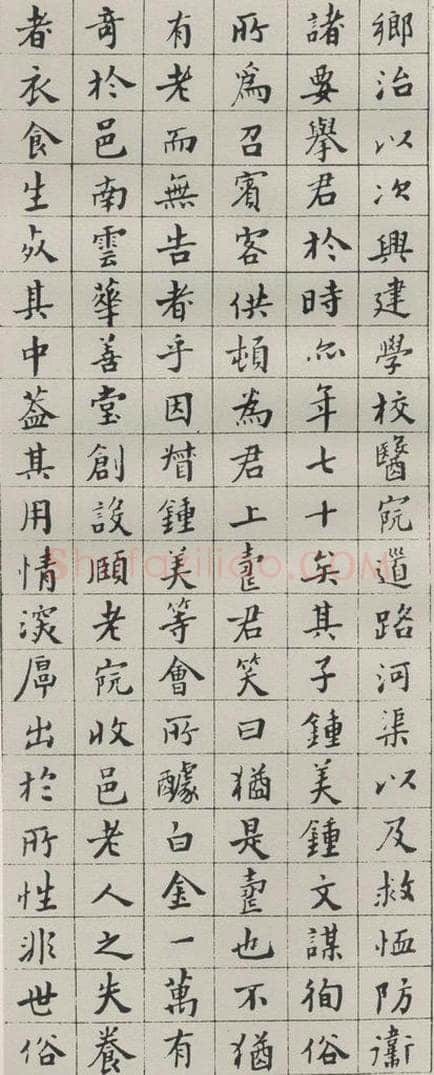 鄉治以次興建學校醫院道路河渠以及救恤防衛
諸要舉君於時亦年七十矣其子鍾美鍾文謀徇俗
所爲召賓客供頓為君上壽君笑曰猶是壽也不猶
有老而無告者乎因督鍾美等會所醵白金一萬有
奇於邑南雲華善堂創設頤老院收邑老人之失養
者衣食生其中葢其用情深厚出於所性非世俗
Shufaziliao.COM